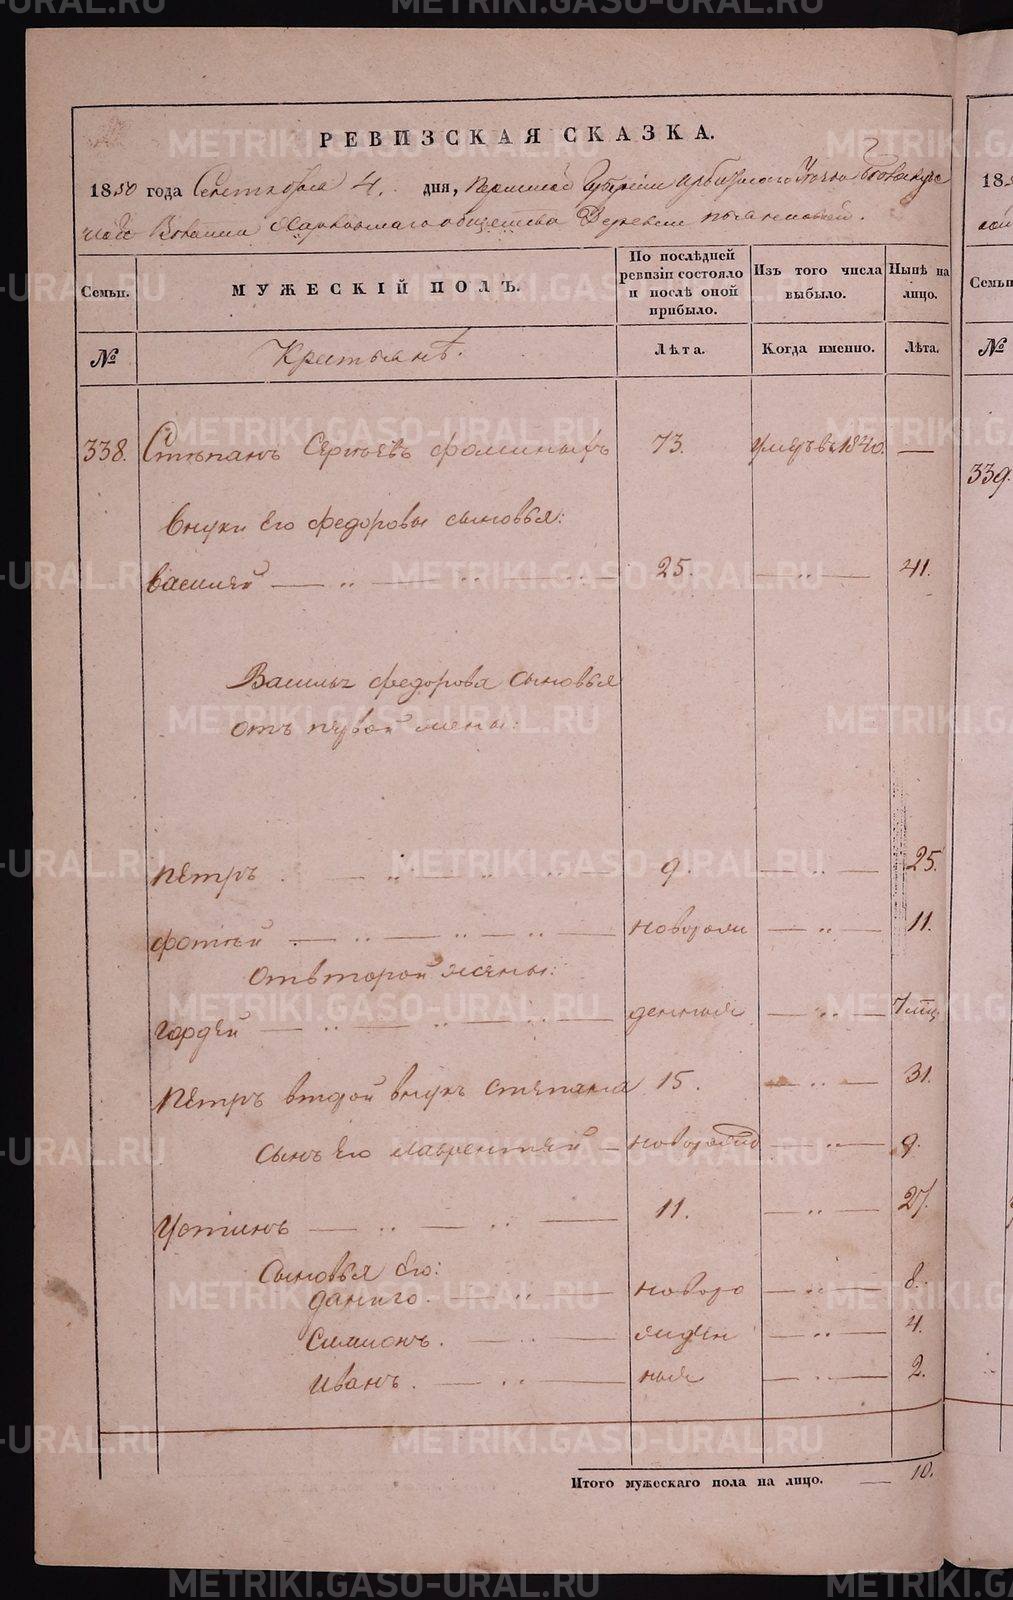 РЕВИЗСКАЯ СКАЗКА.
1850 года Сентября 4. дня, Пермской Губернии Ирбитского Уезда
Волости общества Деревни
Семьи.
МУЖЕСКІЙ ПОЛЪ.
По послѣдней ревизіи состояло и послѣ оной прибыло.
Изъ того числа выбыло.
Нынѣ на лицо.
№
Крестьянѣ.
Лѣта.
Когда именно.
Лѣта.
338. Степанъ Сергѣевъ Фоминыхъ 73. умеръ въ 1840. —
внуки его Федоровы сыновья:
василей 25. 41.
Василья федорова сыновья
отъ первой жены:
петръ 9. 25.
фотей новорож 11.
отвторой жены:
гордей денныя 7 мѣц
петръ второй внукъ степана 15. 31.
сынъ его лаврентей новорожд 9.
Устинъ 11. 27.
Сыновья его:
данило. новоро 8.
Симионъ. жден 4.
иванъ. ныя 2.
Итого мужескаго пола на лицо. — 10.
185
Семьи
№
339.
METRIKI.GASO-URAL.RU